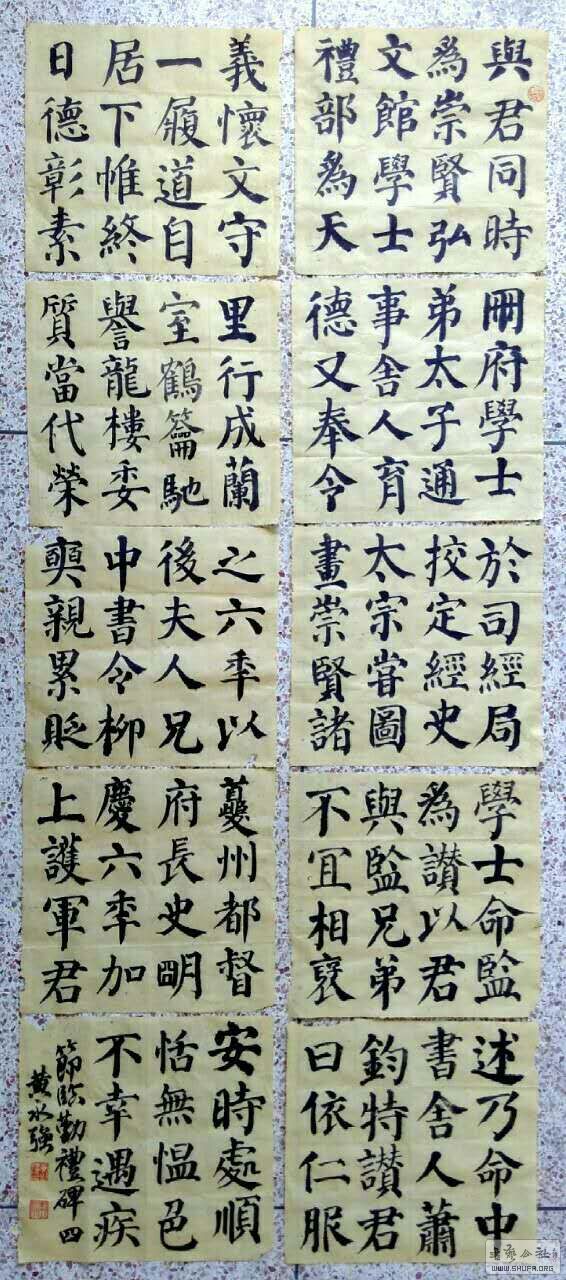 與君同時
為崇賢弘
文館學士
禮部為天
冊府學士
弟太子通
事舍人育
德又奉令
於司經局
挍定經史
太宗甞圖
畫崇賢諸
學士命監
為讃以君
與監兄弟
不冝相襃
述乃命中
書舍人蕭
鈞特讃君
曰依仁服
義懷文守
一履道自
居下帷終
日德彰素
里行成蘭
室鶴籥馳
譽龍樓委
質當代榮
之六年以
後夫人兄
中書令柳
奭親累貶
夔州都督
府長史明
慶六年加
上護軍君
安時處順
恬無愠色
不幸遇疾
節臨勤禮碑四
黄永强
書藝公社
WWW.SHUFA.ORG